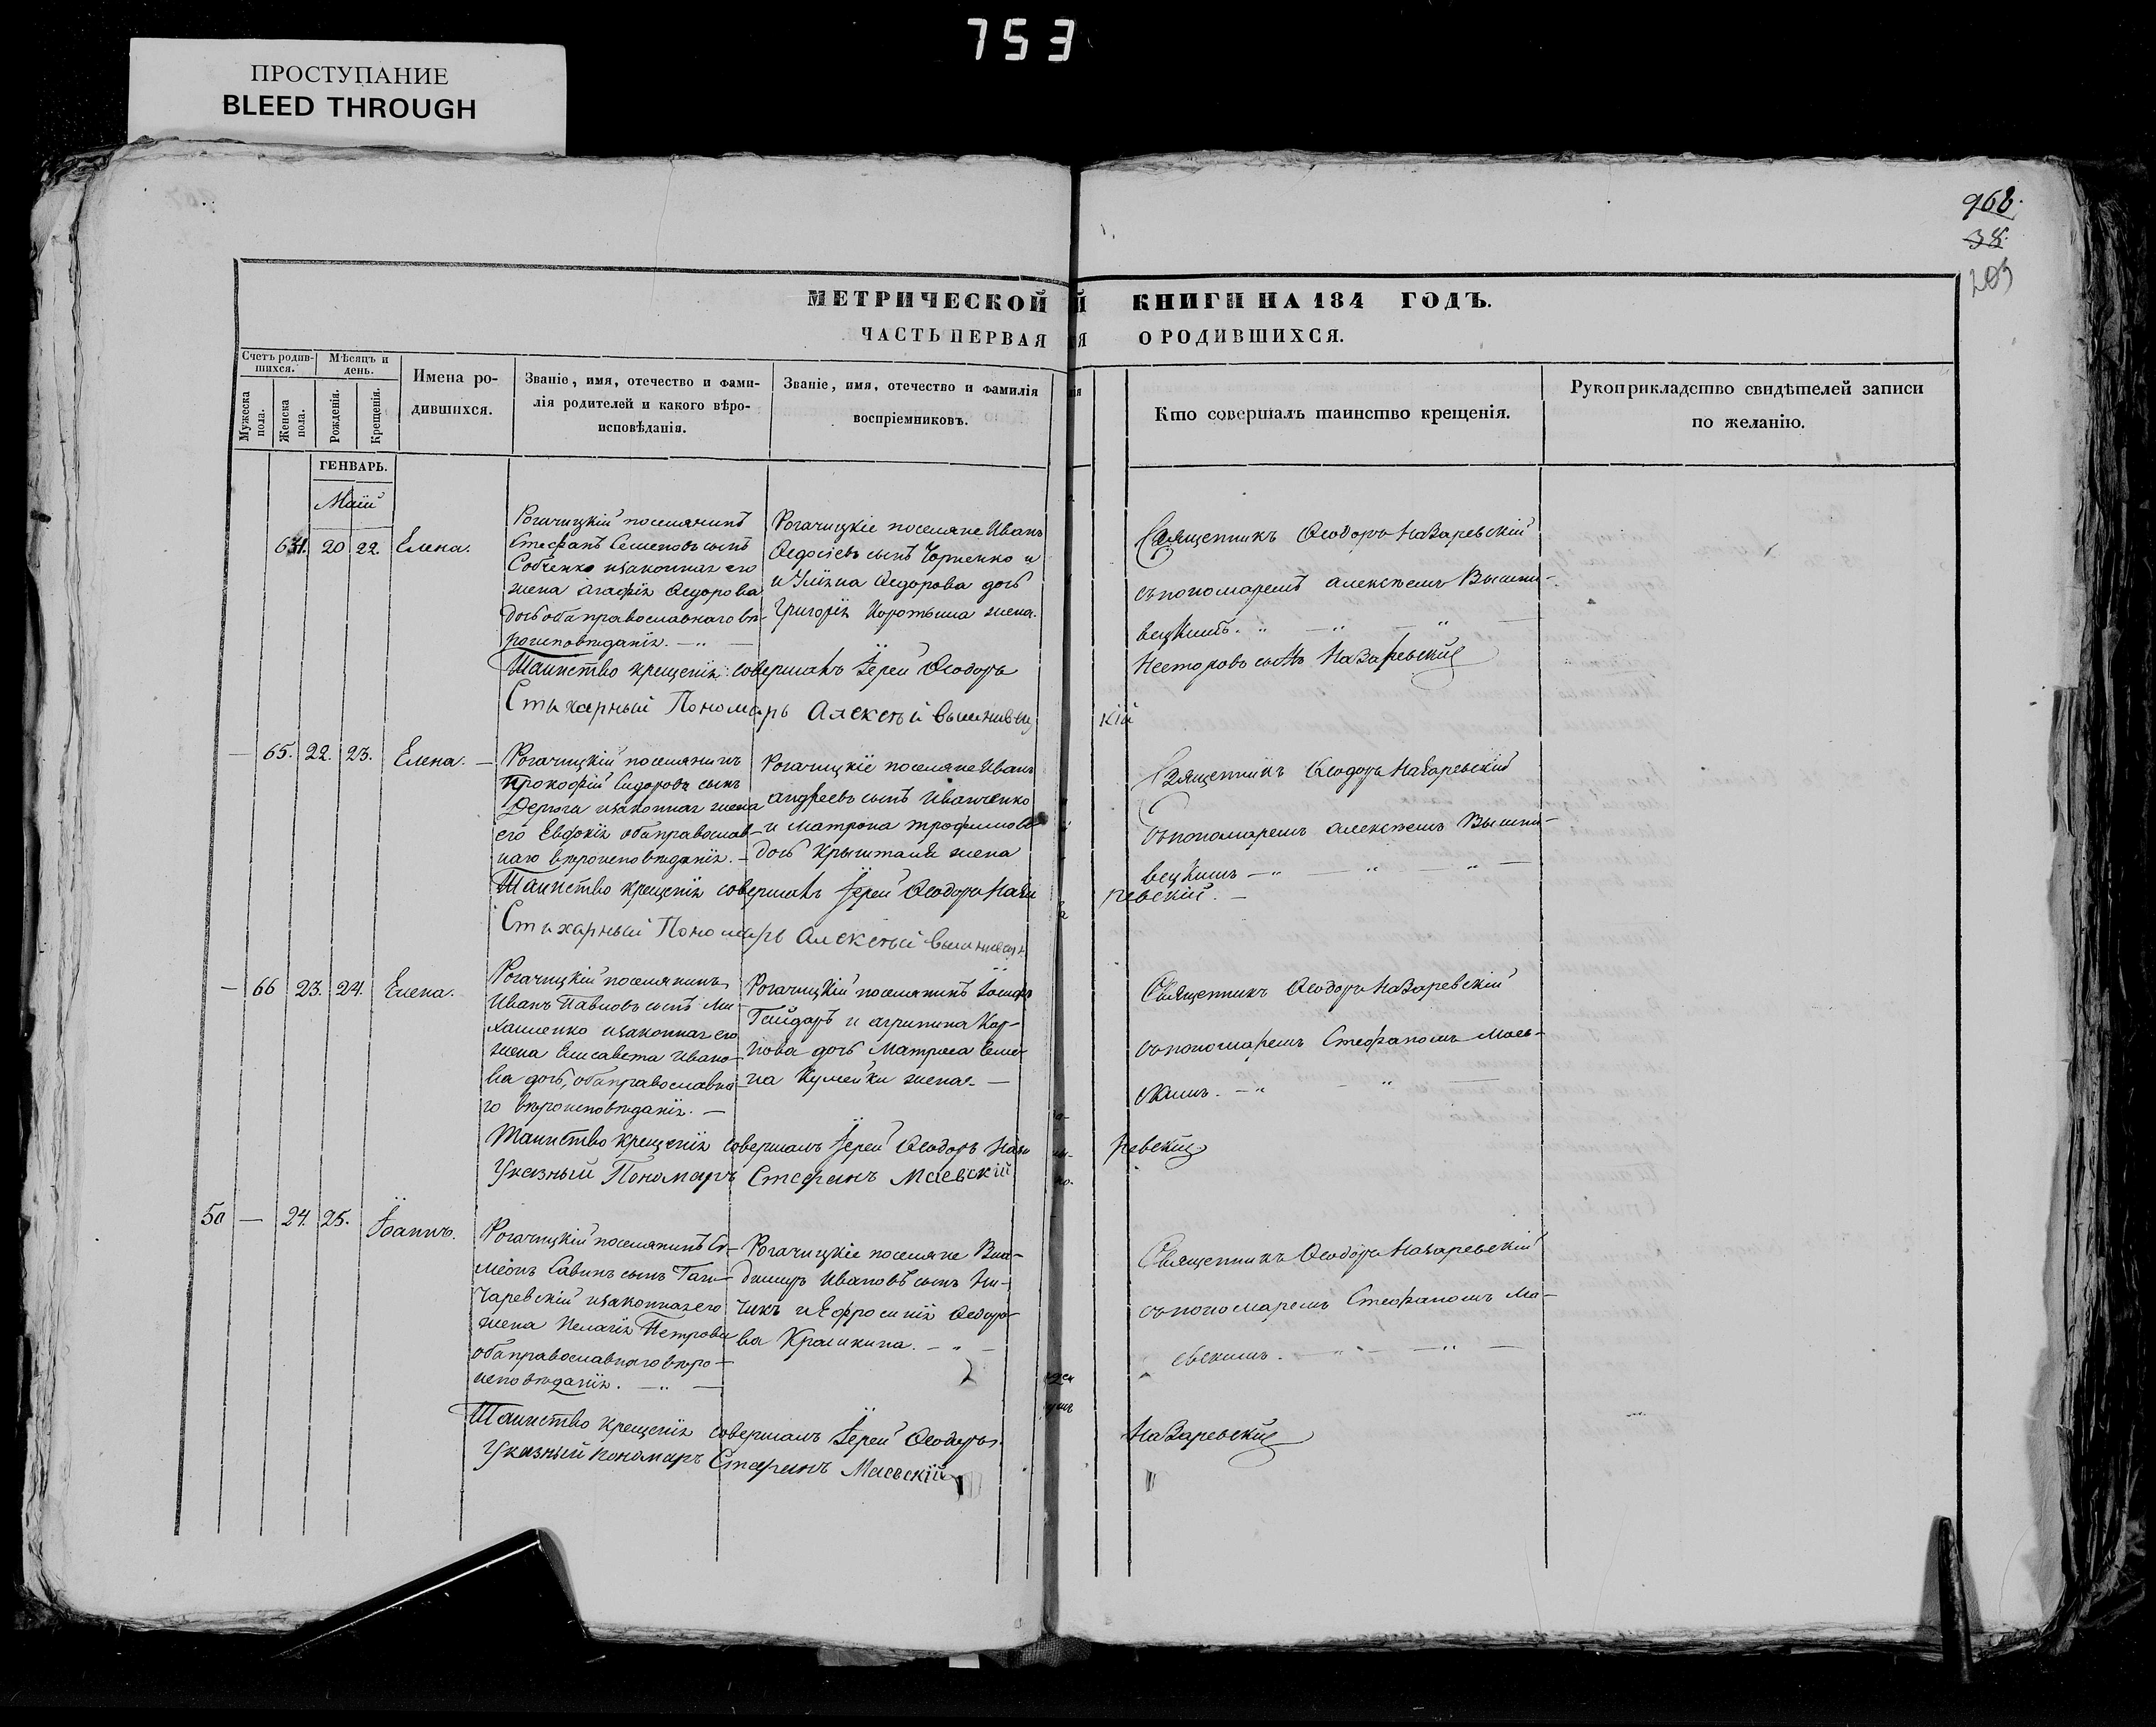 753
ПРОСТУПАНИЕ
BLEED THROUGH
968.
38.
203
МЕТРИЧЕСКОЙ
Й КНИГИ НА 184 ГОДЪ.
ЧАСТЬ ПЕРВАЯ
Я О РОДИВШИХСЯ.
Счетъ родив-
шихся.
Мѣсяцъ и
день.
Мужеска
пола.
Женска
пола.
Рожденія.
Крещенія.
Имена ро-
дившихся.
Званіе, имя, отечество и фами-
лія родителей и какого вѣро-
исповѣданія.
Званіе, имя, отечество и фамилія
воспріемниковъ.
Кто совершалъ таинство крещенія.
Рукоприкладство свидѣтелей записи
по желанію.
ГЕНВАРЬ.
Маій
20 22. Елена.
Рогачицкій поселянинъ
Стефанъ Семеновъ сынъ
Собченко изаконная его
жена Агафія Ѳедорова
дочь оба православнаго вѣ-
роисповѣданія. — „ —
Рогачицкіе поселяне Иванъ
сынъ и
и Ѳедорова дочь
Григорія жена.
Священникъ Ѳеодоръ Назаревскій
съ пономаремъ Алексѣемъ Вышни-
вецкимъ. „ — „ — „ —
Таинство крещенія совершалъ Іерей Ѳеодоръ
Несторовъ сынъ Назаревскій
Стихарный Пономарь Алексѣй Вышнивец
кій
— 65. 22. 23. Елена. —
Рогачицкій поселянинъ
Прокофій Сидоровъ сынъ
Дерюга изаконная жена
его Евдокія оба православ-
наго вѣроисповѣданія. —
Рогачицкіе поселяне Иванъ
Андреевъ сынъ Иванченко
и Матрона Трофимова
дочь жена
Священникъ Ѳеодоръ Назаревскій
съ пономаремъ Алексѣемъ Вышни-
вецкимъ — „ — „ — „ —
Таинство крещенія совершалъ Іерей Ѳеодоръ Наза
ревскій. —
Стихарный Пономарь Алексѣй
— 66 23. 24. Елена.
Рогачицкій поселянинъ
Иванъ Павловъ сынъ Ми-
хайленко изаконная его
жена Елисавета Ивано-
ва дочь, оба православна-
го вѣроисповѣданія. —
Рогачицкій поселянинъ Іосифъ
Гайдаръ и Агрипина Кар-
пова дочь Матроса Семе-
на жена. —
Священникъ Ѳеодоръ Назаревскій
съ пономаремъ Стефаномъ Маев-
скимъ. — „ — „ —
Таинство крещенія совершалъ Іерей Ѳеодоръ Наза
ревскій
Указный Пономарь Стефанъ Маевскій
50 — 24. 25. Іоаннъ.
Рогачицкій поселянинъ Си-
меонъ Савинъ сынъ
изаконная его
жена Пелагія Петрова
оба православнаго вѣро-
исповѣданія. — „ —
Рогачицкіе поселяне Вла-
димиръ Ивановъ сынъ
и Ефросинія Ѳедоро-
ва — „ —
Священникъ Ѳеодоръ Назаревскій
съ пономаремъ Стефаномъ Ма-
евскимъ. — „ — „ —
Таинство крещенія совершалъ Іерей Ѳеодоръ
Назаревскій
Указный пономарь Стефанъ Маевскій